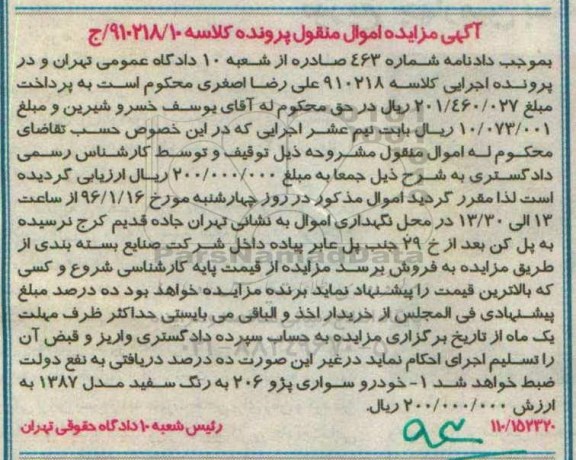 آگهی مزایده اموال منقول پرونده کلاسه ۹۱۰۲۱۸/۱۰/ج
بموجب دادنامه شماره ۴۶۳ صادره از شعبه ۱۰ دادگاه عمومی تهران و در
پرونده اجرایی کلاسه ۹۱۰۲۱۸ علی رضا اصغری محکوم است به پرداخت
مبلغ ۲۰۱/۴۶۰/۰۲۷ ریال در حق محکوم له آقای یوسف خسرو شیرین و مبلغ
۱۰/۰۷۳/۰۰۱ ریال بابت نیم عشر اجرایی که در این خصوص حسب تقاضای
محکوم له اموال منقول مشروحه ذیل توقیف و توسط کارشناس رسمی
دادگستری به شرح ذیل جمعا به مبلغ ۲۰۰/۰۰۰/۰۰۰ ریال ارزیابی گردیده
است لذا مقرر گردید اموال مذکور در روز چهارشنبه مورخ ۹۶/۱/۱۶ از ساعت
۱۳ الی ۱۳/۳۰ در محل نگهداری اموال به نشانی تهران جاده قدیم کرج نرسیده
به پل کن بعد از خ ۲۹ جنب پل عابر پیاده داخل شرکت صنایع بسته بندی از
طریق مزایده به فروش برسد مزایده از قیمت پایه کارشناسی شروع و کسی
که بالاترین قیمت را پیشنهاد نماید برنده مزایده خواهد بود ده درصد مبلغ
پیشنهادی فی المجلس از خریدار اخذ و الباقی می بایستی حداکثر ظرف مهلت
یک ماه از تاریخ برگزاری مزایده به حساب سپرده دادگستری واریز و قبض آن
را تسلیم اجرای احکام نماید درغیر این صورت ده درصد دریافتی به نفع دولت
ضبط خواهد شد ۱- خودرو سواری پژو ۲۰۶ به رنگ سفید مدل ۱۳۸۷ به
ارزش ۲۰۰/۰۰۰/۰۰۰ ریال.
۱۱۰/۱۵۲۳۲۰ رئیس شعبه ۱۰ دادگاه حقوقی تهران
ParsNamadData